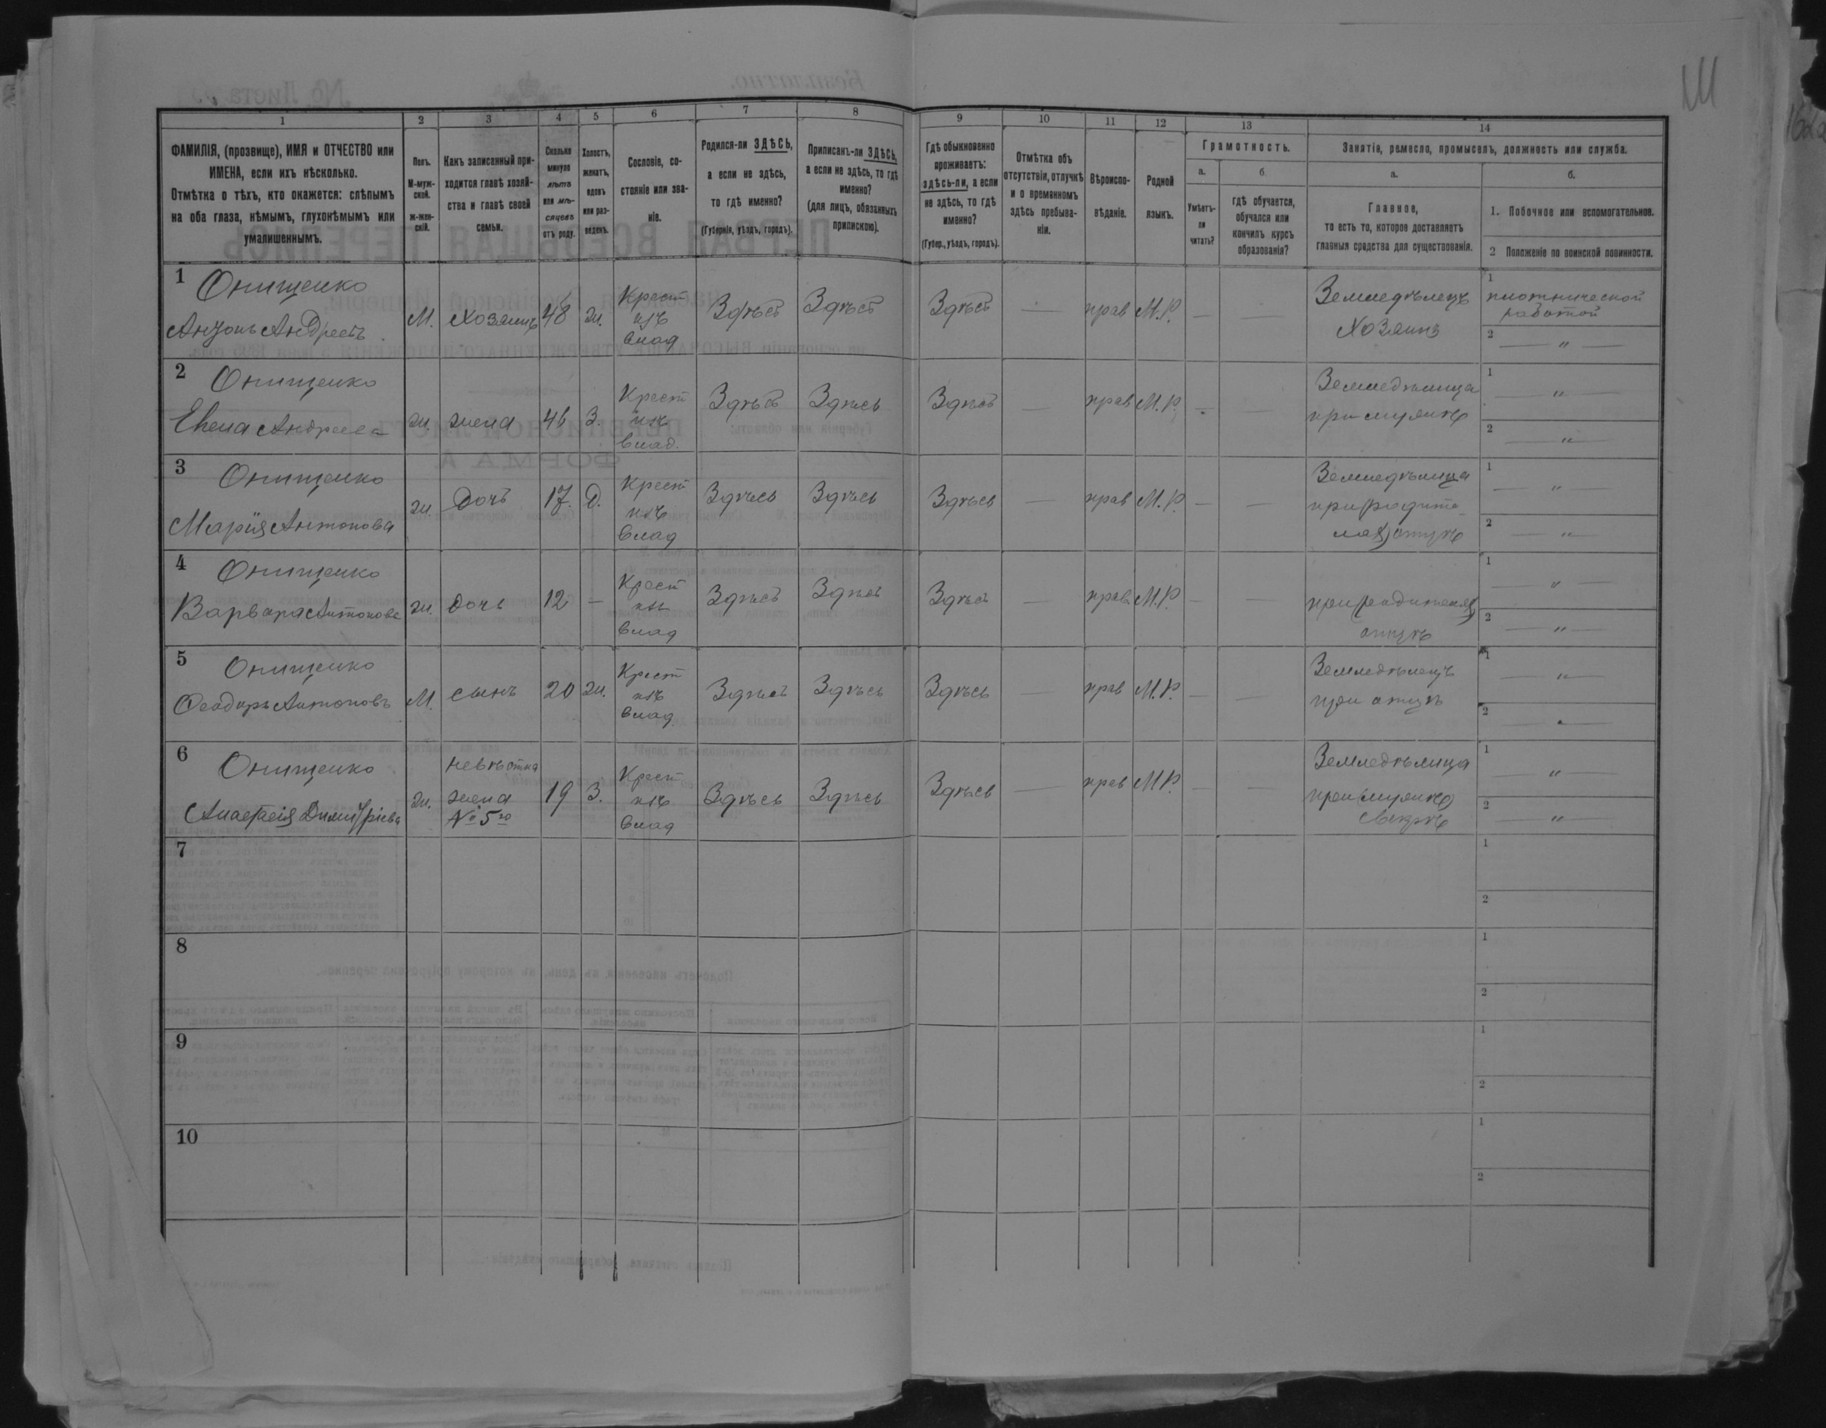 1 2 3 4 5 6 7 8 9 10 11 12 13 14
ФАМИЛІЯ, (прозвище), ИМЯ и ОТЧЕСТВО или
ИМЕНА, если ихъ нѣсколько.
Отмѣтка о тѣхъ, кто окажется: слѣпымъ
на оба глаза, нѣмымъ, глухонѣмымъ или
умалишеннымъ.
Полъ.
М-муж-
ской.
ж-жен-
скій.
Какъ записанный при-
ходится главѣ хозяй-
ства и главѣ своей
семьи.
Сколько
минуло
лѣтъ
или мѣ-
сяцевъ
отъ роду.
Холостъ,
женатъ,
вдовъ
или раз-
веденъ.
Сословіе, со-
стояніе или зва-
ніе.
Родился-ли ЗДѢСЬ,
а если не здѣсь,
то гдѣ именно?
(Губернія, уѣздъ, городъ).
Приписанъ-ли ЗДѢСЬ,
а если не здѣсь, то гдѣ
именно?
(для лицъ, обязанныхъ
припискою).
Гдѣ обыкновенно
проживаетъ:
здѣсь-ли, а если
не здѣсь, то гдѣ
именно?
(Губер., уѣздъ, городъ).
Отмѣтка объ
отсутствіи, отлучкѣ
и о временномъ
здѣсь пребыва-
ніи.
Вѣроиспо-
вѣданіе.
Родной
языкъ.
Грамотность.
а.
Умѣетъ-
ли
читать?
б
гдѣ обучается,
обучался или
кончилъ курсъ
образованія?
Занятіе, ремесло, промыселъ, должность или служба.
а.
Главное,
то есть то, которое доставляетъ
главныя средства для существованія.
б.
1. Побочное или вспомогательное.
2 Положеніе по воинской повинности.
1 Онищенко
Антонъ Андреевъ
М. Хозяинъ 48 ж. Крест
изъ
влад Здѣсь Здѣсь Здѣсь — прав М.Р. — —
Земледѣлецъ
Хозяинъ
1 плотнической
работой
2 — " —
2 Онищенко
Елена Андреева
ж. жена 46 З. Крест
изъ
влад. Здѣсь Здѣсь Здѣсь — прав М.Р. -
Земледѣлица
при мужѣ
1 — " —
2 — " —
3 Онищенко
Марія Антонова
ж. Дочь 17. Д. Крест
изъ
влад Здѣсь Здѣсь Здѣсь — прав М.Р. — —
Земледѣлица
1 — " —
2 — " —
4 Онищенко
Варвара Антонова
ж. Дочь 12 — Крест
изъ
влад Здѣсь Здѣсь Здѣсь — прав М.Р. — —
отцѣ
1 — " —
2 — " —
5 Онищенко
Феодоръ Антоновъ
М. сынъ 20 ж. Крест
изъ
влад Здѣсь Здѣсь Здѣсь — прав М.Р. — —
Земледѣлецъ
при отцѣ
1 — " —
2 — " —
6 Онищенко
Анастасія Димитріева
ж. невѣстка
жена
№ 5го 19 З. Крест
изъ
влад Здѣсь Здѣсь Здѣсь — прав М.Р. — —
Земледѣлица
при мужѣ
свекрѣ
1 — " —
2 — " —
7 1
2
8 1
2
9 1
2
10 1
2